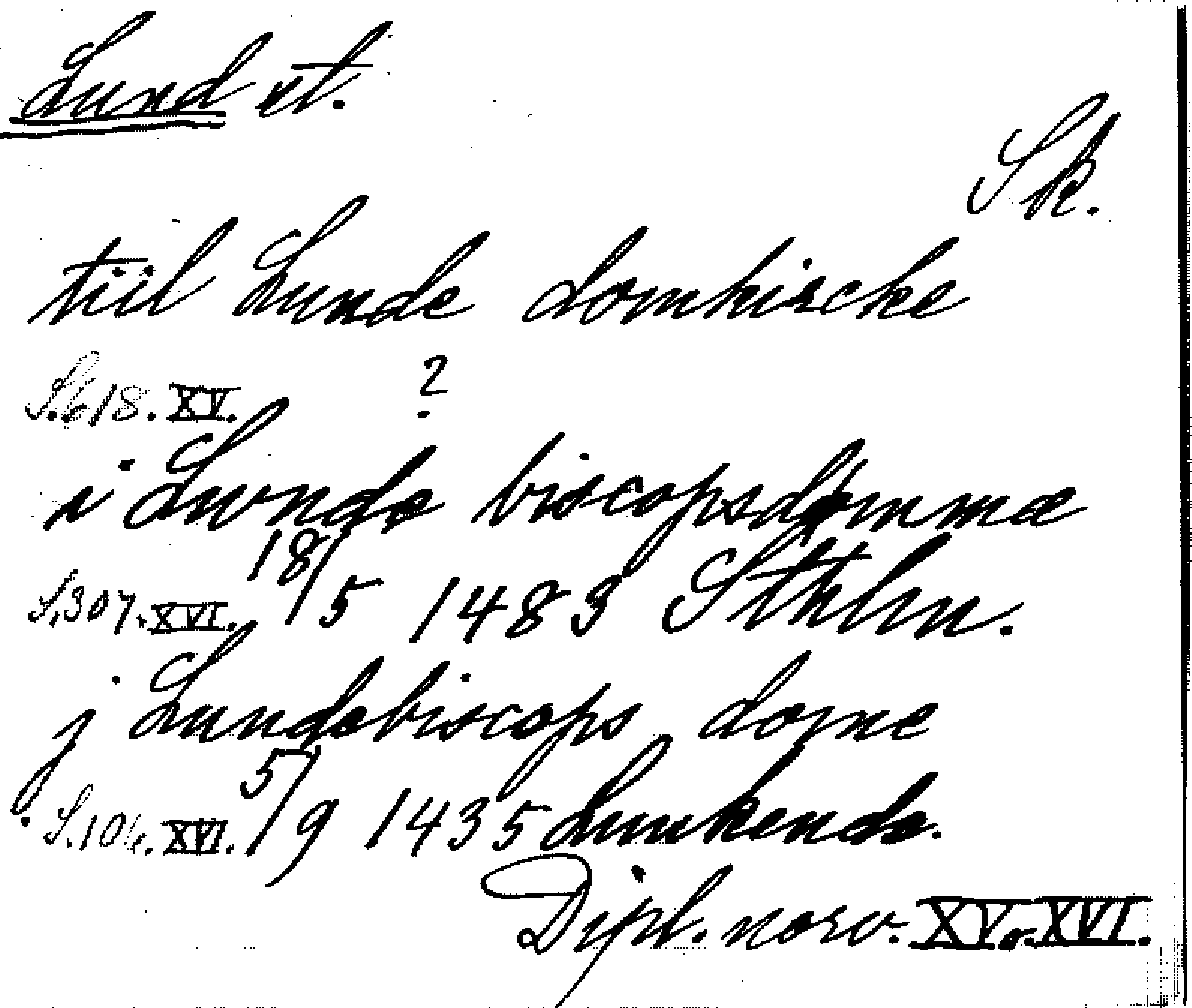 Lund st.
Sk.
tiil Lunde domkircke
S. 618. XV. ?
i Lwnde biscopsdømmæ
S. 307. XVI. 18/5 1483 Sthlm.
j Lundebiscops dome
S. 104. XVI. 5/9 1435
Dipl. norv. XV o. XVI.